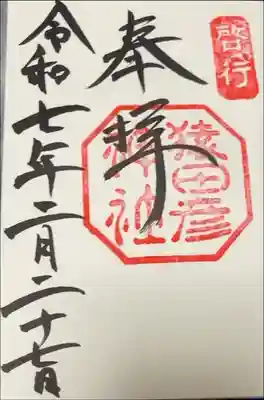 啓行
奉拝
猿田彦
神社
令和七年二月二十七日